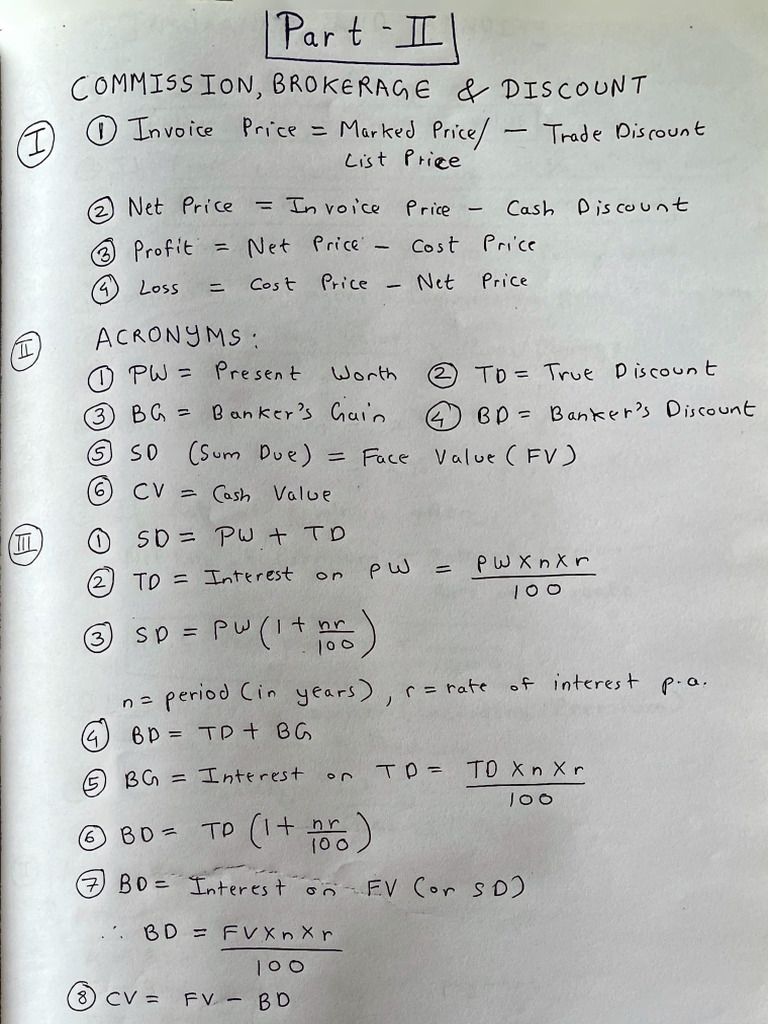 Part-II
COMMISSION, BROKERAGE & DISCOUNT
I ① Invoice Price = Marked Price/ — Trade Discount
List Price
② Net Price = Invoice Price - Cash Discount
③ Profit = Net Price - Cost Price
④ Loss = Cost Price - Net Price
II ACRONYMS:
① PW = Present Worth ② TD = True Discount
③ BG = Banker's Gain ④ BD = Banker's Discount
⑤ SD (Sum Due) = Face Value (FV)
⑥ CV = Cash Value
III ① SD = PW + TD
② TD = Interest on PW = PW X n X r / 100
③ SD = PW (1 + nr/100)
n = period (in years), r = rate of interest p.a.
④ BD = TD + BG
⑤ BG = Interest on TD = TD X n X r / 100
⑥ BD = TD (1 + nr/100)
⑦ BD = Interest on FV (or SD)
∴ BD = FV X n X r / 100
⑧ CV = FV - BD